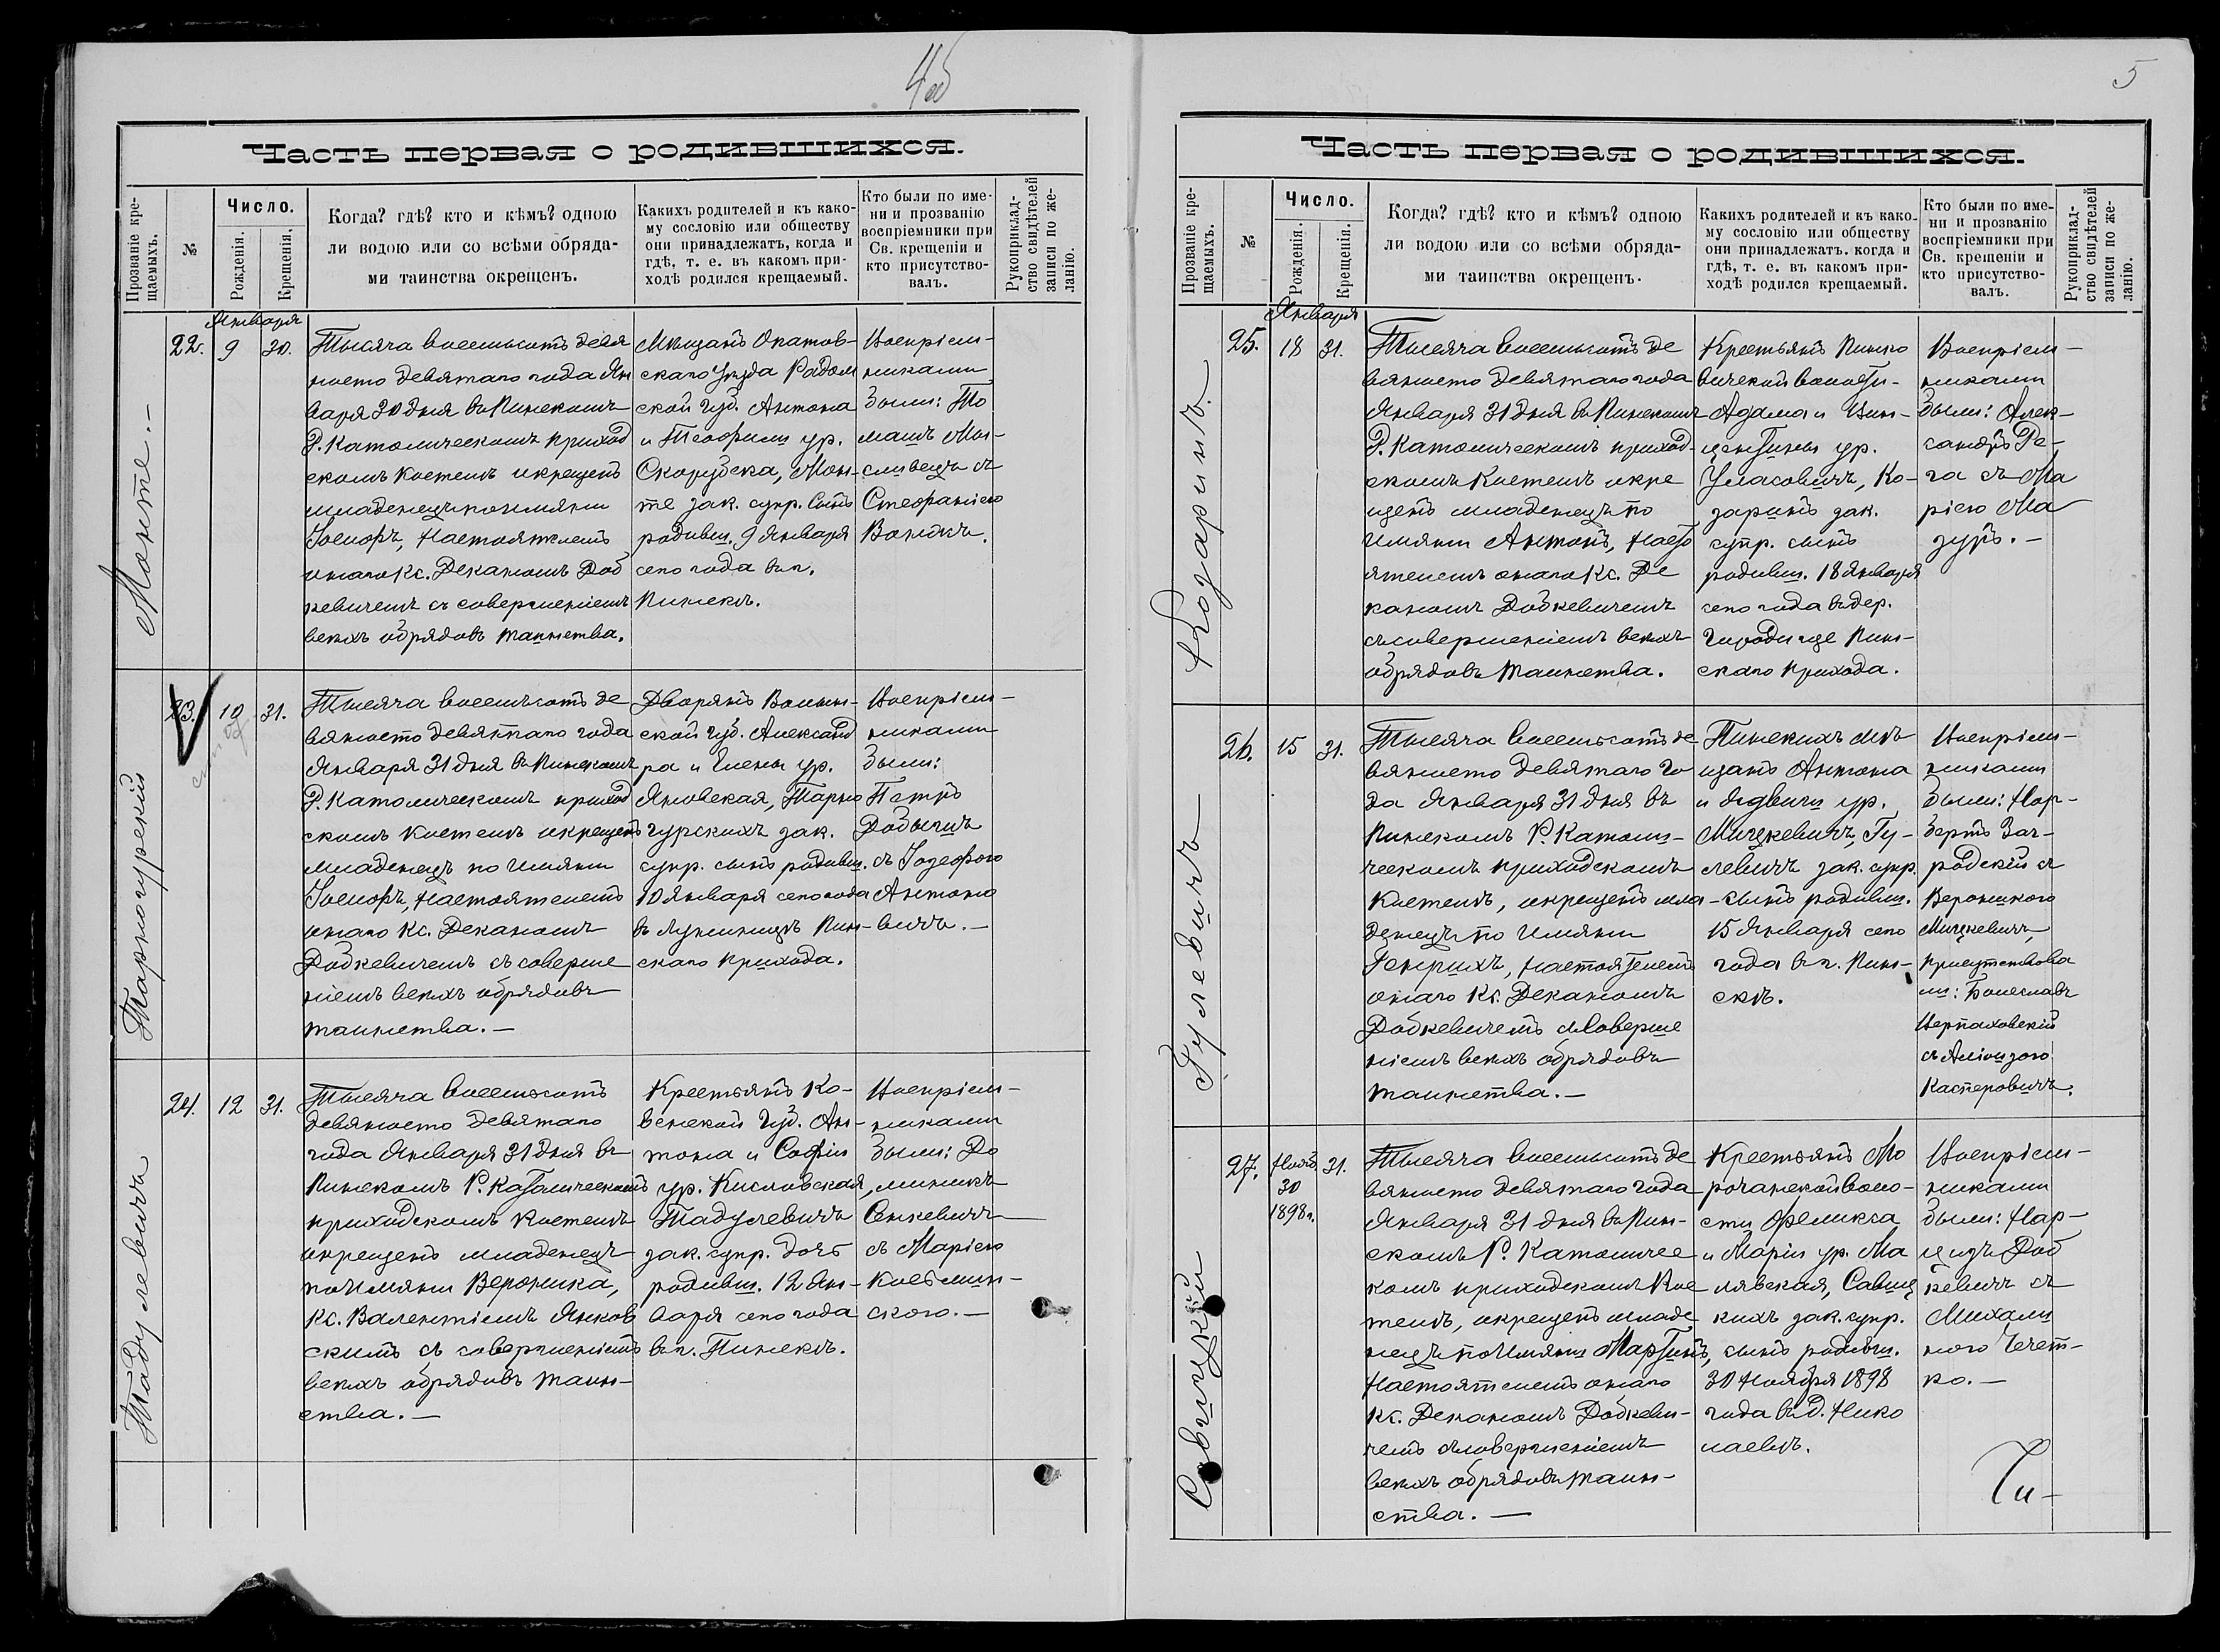 4об
Часть первая о родившихся.
Прозваніе кре-
щаемыхъ.
№
Число.
Рожденія.
Крещенія.
Когда? гдѣ? кто и кѣмъ? одною
ли водою или со всѣми обряда-
ми таинства окрещенъ.
Какихъ родителей и къ како-
му сословію или обществу
они принадлежатъ, когда и
гдѣ, т. е. въ какомъ при-
ходѣ родился крещаемый.
Кто были по име-
ни и прозванію
воспріемники при
Св. крещеніи и
кто присутство-
валъ.
Рукоприклад-
ство свидѣтелей
записи по же-
ланію.
Января
Монте.-
22.
9
30.
Тысяча восемьсотъ девя
носто девятаго года Ян
варя 30 дня въ Пинскомъ
Р. Католическомъ приход
скомъ костелѣ окрещенъ
младенецъ по имяни
Іосифъ, настоятелемъ
онаго Кс. Деканомъ Доб
кевичемъ съ совершеніемъ
всѣхъ обрядовъ таинства.
Мѣщанъ Опатов-
скаго уѣзда Радом
ской губ. Антона
и Теофили ур.
Скорубска, Мон-
те зак. супр. сынъ
родивш. 9 Января
сего года въ г.
Пинскѣ.
Воспріем-
никами
были: То
машъ Мы-
сливецъ съ
Стефаніею
Тарногурскій
23.
10
31.
Тысяча восемьсотъ де
вяносто девятаго года
Января 31 дня въ Пинскомъ
Р. Католическомъ приход
скомъ костелѣ окрещенъ
младенецъ по имяни
Іосифъ, настоятелемъ
онаго Кс. Деканомъ
Добкевичемъ съ соверше
ніемъ всѣхъ обрядовъ
таинства.-
Дворянъ Волын-
ской губ. Александ
ра и Елены ур.
Яновская, Тарно
гурскихъ зак.
супр. сынъ родивш.
10 Января сего года
въ Лунинцѣ Пин-
скаго прихода.
Воспріем-
никами
были:
Петръ
съ Іозефою
Антоно
вичъ.-
Тадулевичъ
24.
12
31.
Тысяча восемьсотъ
девяносто девятаго
года Января 31 дня въ
Пинскомъ Р. Католическомъ
приходскомъ костелѣ
окрещенъ младенецъ
по имяни Вероника,
Кс. Валентіемъ Янков
скимъ съ совершеніемъ
всѣхъ обрядовъ таин-
ства.-
Крестьянъ Ко-
венской губ. Ан-
тона и Софіи
ур. Кисловская,
Тадулевичъ
зак. супр. дочь
родивш. 12 Ян-
варя сего года
въ г. Пинскѣ.
Воспріем-
никами
были: До
миникъ
Сенкевичъ
съ Маріею
5
Часть первая о родившихся.
Прозваніе кре-
щаемыхъ.
№
Число.
Рожденія.
Крещенія.
Когда? гдѣ? кто и кѣмъ? одною
ли водою или со всѣми обряда-
ми таинства окрещенъ.
Какихъ родителей и къ како-
му сословію или обществу
они принадлежатъ. когда и
гдѣ, т. е. въ какомъ при-
ходѣ родился крещаемый.
Кто были по име-
ни и прозванію
воспріемники при
Св. крещеніи и
кто присутство-
валъ.
Рукоприклад-
ство свидѣтелей
записи по же-
ланію.
Января
Козаринъ.
25.
18
31.
Тысяча восемьсотъ де
вяносто девятаго года
Января 31 дня въ Пинскомъ
Р. Католическомъ приход-
скомъ костелѣ окре
щенъ младенецъ по
имяни Антонъ, насто
ятелемъ онаго Кс. Де
каномъ Добкевичемъ
съ совершеніемъ всѣхъ
обрядовъ таинства.
Крестьянъ Пинко
вичской волости-
Адама и Вин-
центины ур.
Уласовичъ, Ко-
заринъ зак.
супр. сынъ
родивш. 18 Января
сего года въ дер.
Городище Пин-
скаго прихода.
Воспріем-
никами
были: Алек-
сандръ Ре-
га съ Ма
ріею Ма
зуръ.-
Гулевичъ
26.
15
31.
Тысяча восемьсотъ де
вяносто девятаго го
да Января 31 дня въ
Пинскомъ Р. Католи-
ческомъ приходскомъ
костелѣ, окрещенъ мла-
денецъ по имяни
Генрихъ, настоятелемъ
онаго Кс. Деканомъ
Добкевичемъ съ соверше
ніемъ всѣхъ обрядовъ
таинства.-
Пинскихъ мѣ
щанъ Антона
и Ядвиги ур.
Мицкевичъ, Гу-
левичъ зак. супр.
сынъ родивш.
15 Января сего
года въ г. Пин-
скѣ.
Воспріем-
никами
были: Нор-
бертъ Заг-
родскій съ
Вероникою
Мицкевичъ,
присутствова
ли: Болеславъ
съ Алоизою
Касперовичъ.
Савицкій
27.
Нояб.
30
1898г.
31.
Тысяча восемьсотъ де
вяносто девятаго года
Января 31 дня въ Пин-
скомъ Р. Католичес
комъ приходскомъ кос
телѣ, окрещенъ младе
нецъ по имяни Мартинъ,
настоятелемъ онаго
Кс. Деканомъ Добкеви-
чемъ съ совершеніемъ
всѣхъ обрядовъ таин-
ства.-
Крестьянъ Мо
рочанской воло-
сти Феликса
и Маріи ур. Ма
лявская, Савиц
кихъ зак. супр.
сынъ родивш.
30 Ноября 1898
года въ д. Нико
лаевѣ.
Воспріем-
никами
были: Нар-
цизъ Доб
кевичъ съ
Михали
ною Чечет-
ко.-